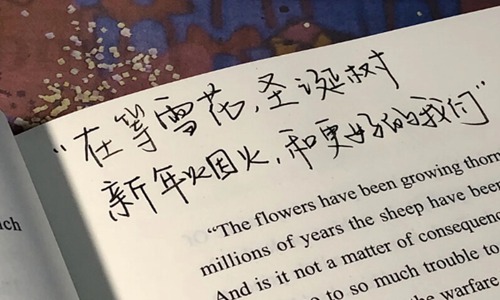 "在等雪花,圣诞树
新年烟火,和更好的我们"
"The flowers have been growing thorn
millions of years the sheep have been
ach
And is it not a matter of consequenc
to so much trouble to
the warfare